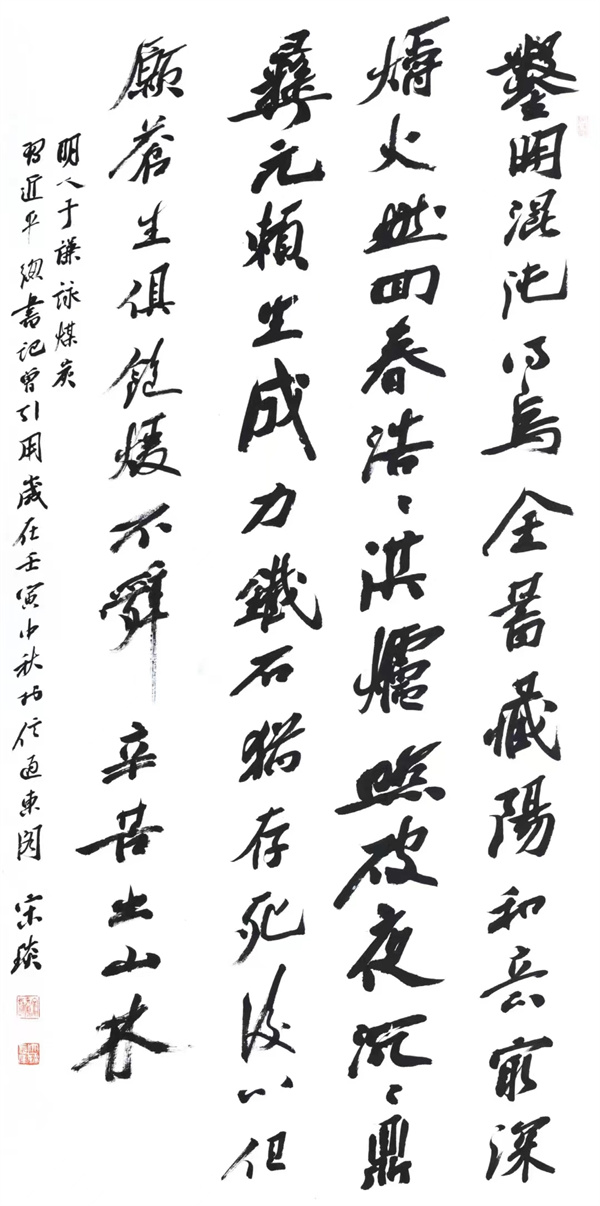 鑿開混沌得烏金蓄藏陽和意最深
爝火然回春浩〻洪爐照破夜沉〻鼎
彝元賴生成力鐵石猶存死後心但
願蒼生俱飽煖不辭辛苦出山林
明人于謙詠煤炭
習近平總書記曾引用歲在壬寅中秋於信通東閣 宋琰